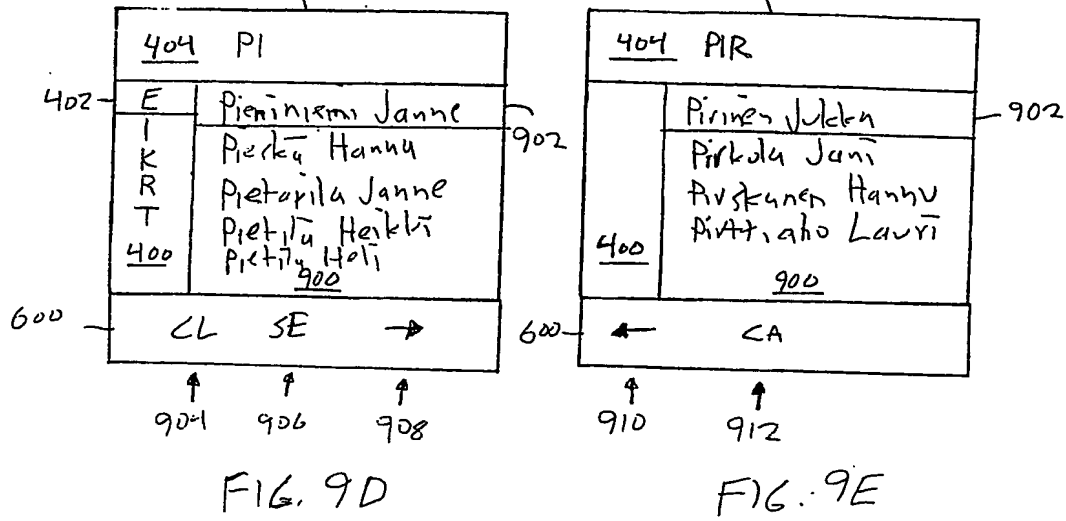 404 PI
402
E
I
K
R
T
400
Pieniniemi Janne
902
Pietarila Janne
Pietilä Heikki
Pietilä Heli
900
600
CL SE →
904 906 908
FIG. 9D
404 PIR
Pirinen Jukka
902
Pirkola Jani
Pirskanen Hannu
Pirttiaho Lauri
400
900
600
← CA
910 912
FIG. 9E